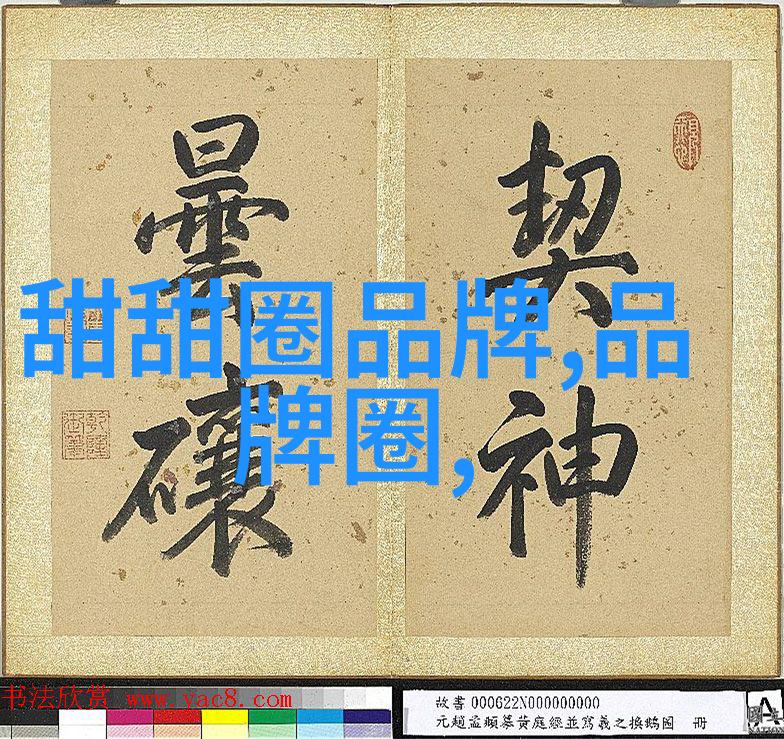 契神
曇
甜甜圈品牌,品
牌圈,
书法欣赏 www.yac8.com
故書000622N000000000
元趙孟頫摹黃庭經並寫羲之換鵝圖 冊